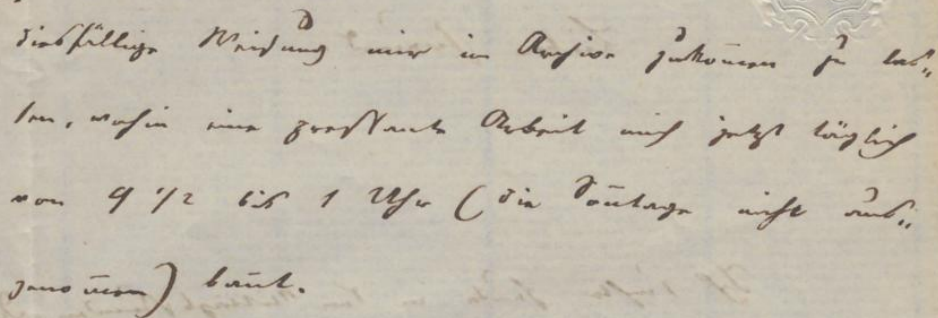 diesfällige Weisung mir im Archive zukom̄en zu las„
sen, wohin eine pressante Arbeit mich jetzt täglich
von 9 1/2 bis 1 Uhr (die Son̄tage nicht aus„
genom̄en) ban̄t.